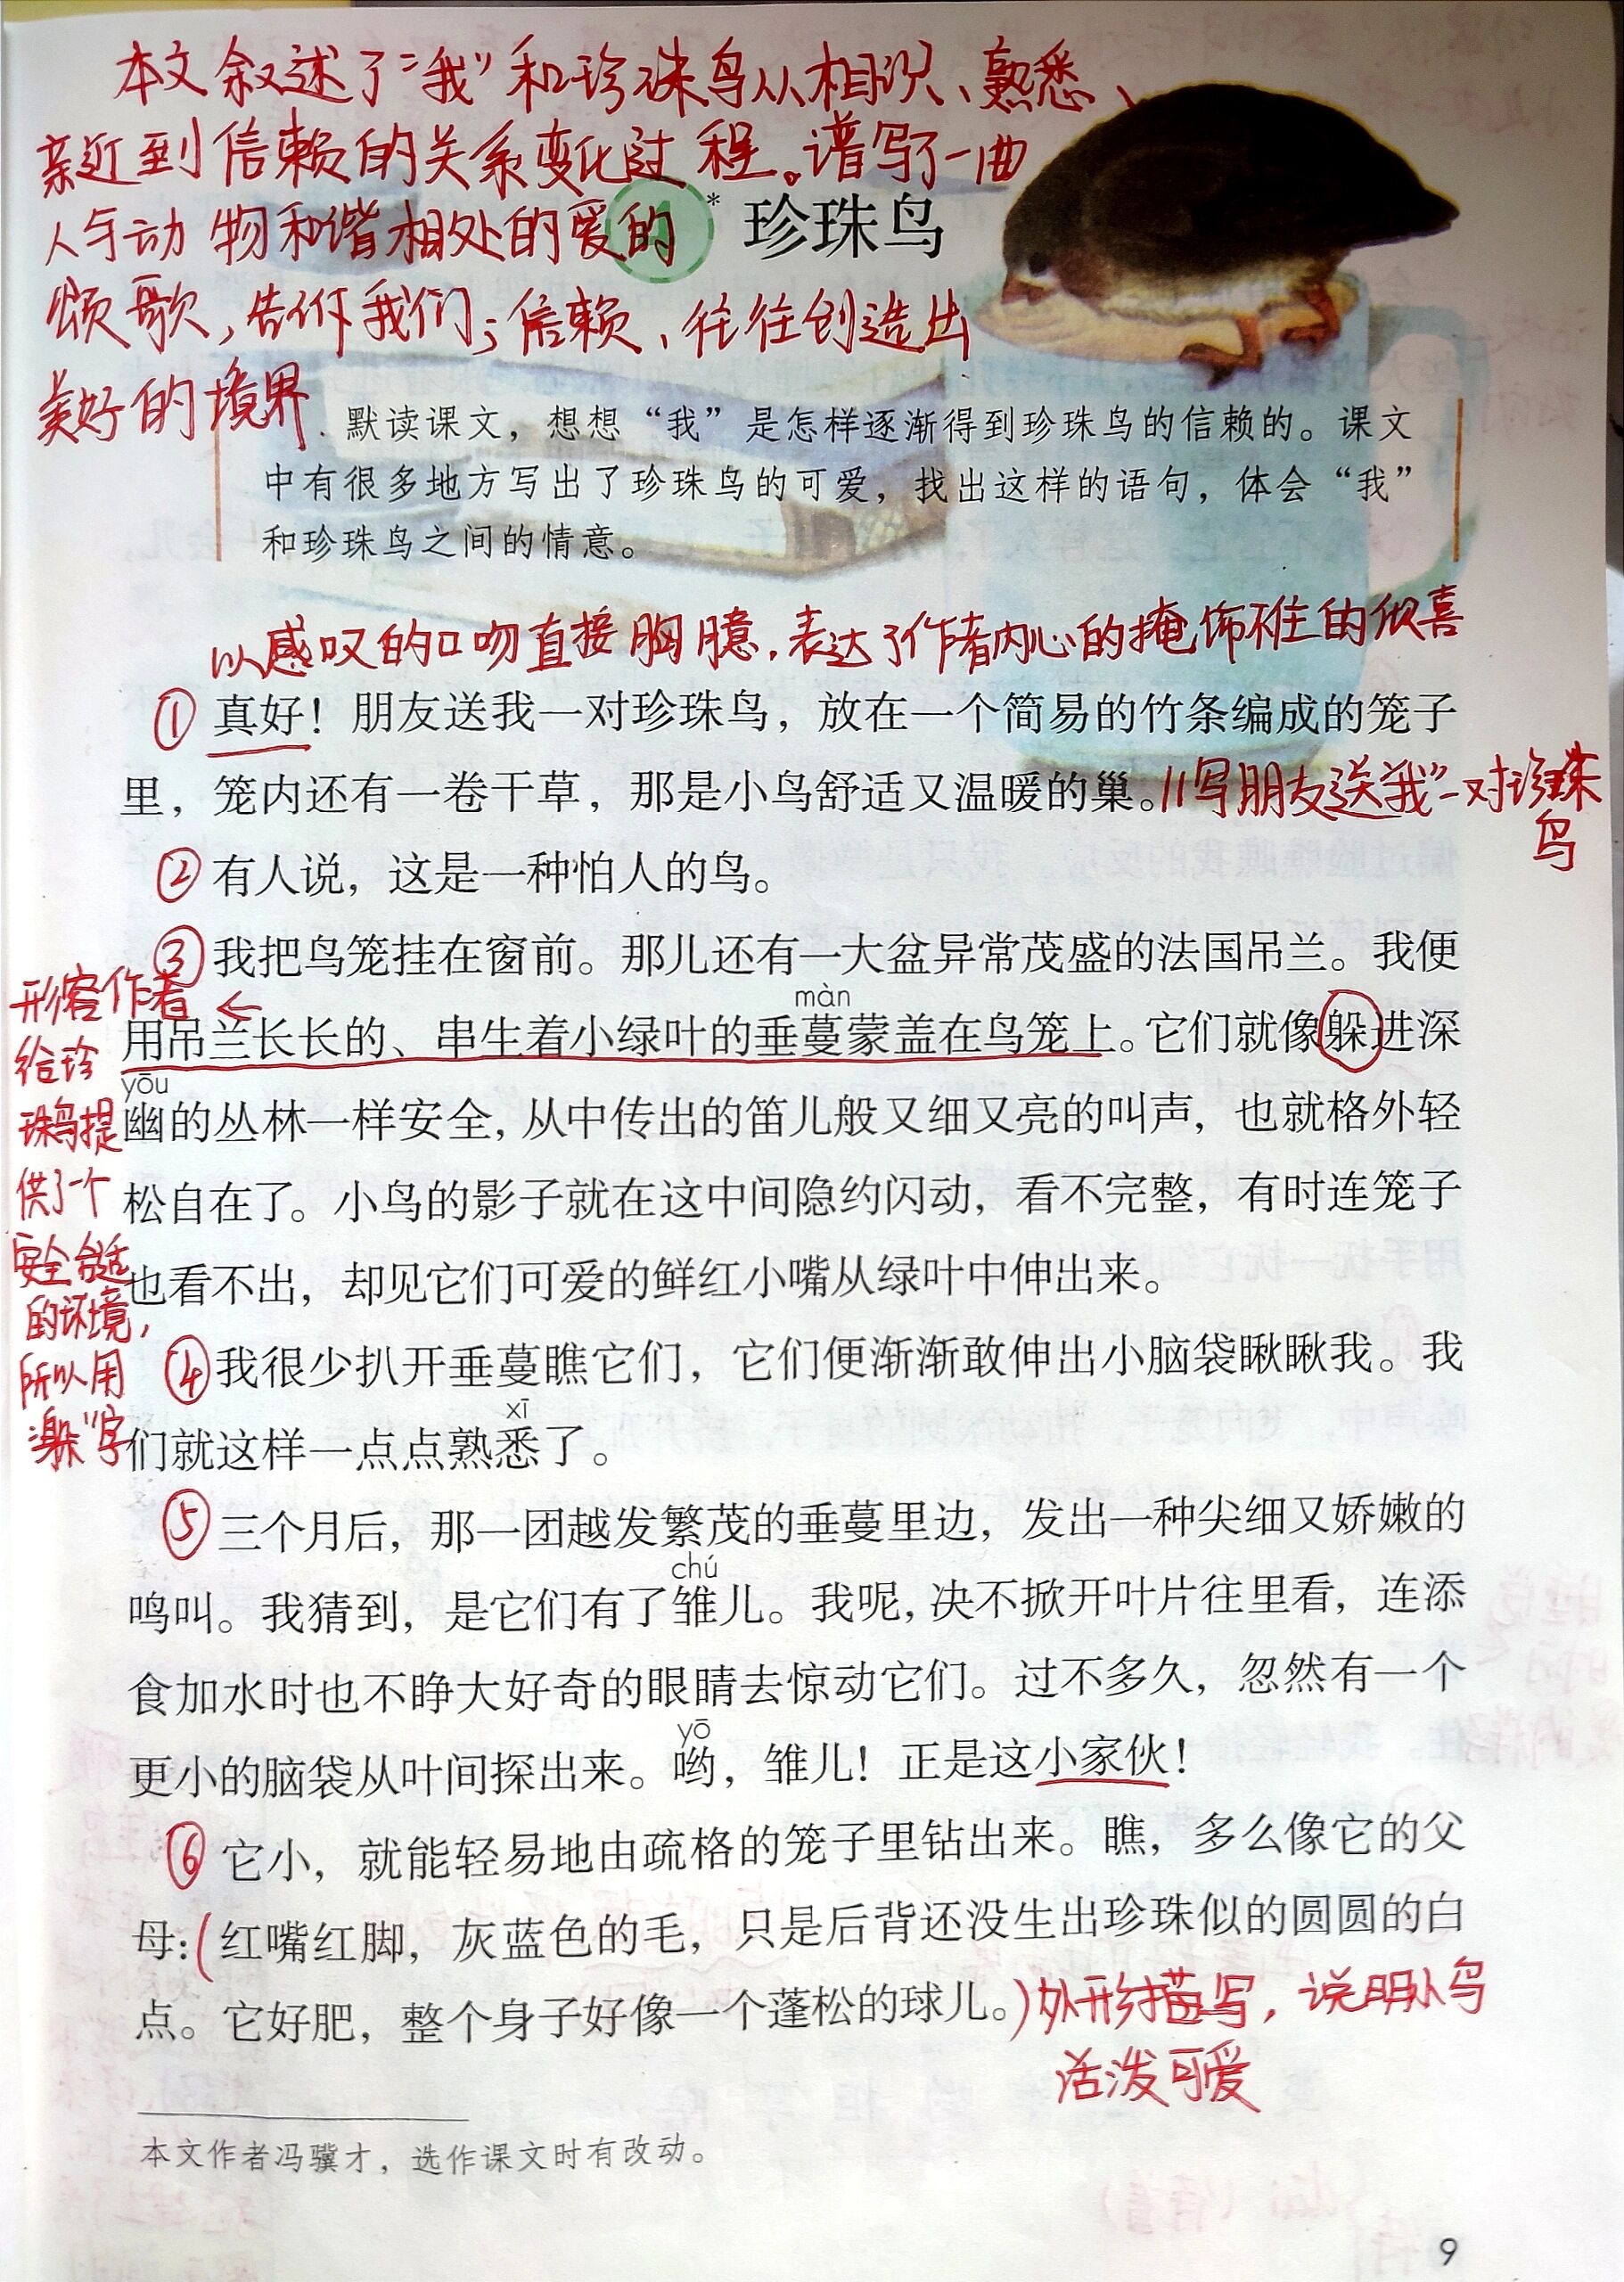 本文叙述了“我”和珍珠鸟从相识、熟悉、
亲近到信赖的关系变化过程。谱写了一曲
人与动物和谐相处的爱的
4* 珍珠鸟
颂歌，告诉我们；信赖、往往创造出
美好的境界.
默读课文，想想“我”是怎样逐渐得到珍珠鸟的信赖的。课文
中有很多地方写出了珍珠鸟的可爱，找出这样的语句，体会“我”
和珍珠鸟之间的情意。
以感叹的口吻直接胸臆，表达了作者内心的掩饰不住的欣喜
① 真好！朋友送我一对珍珠鸟，放在一个简易的竹条编成的笼子
里，笼内还有一卷干草，那是小鸟舒适又温暖的巢。
//写朋友送“我”一对珍珠
鸟
② 有人说，这是一种怕人的鸟。
③ 我把鸟笼挂在窗前。那儿还有一大盆异常茂盛的法国吊兰。我便
màn
用吊兰长长的、串生着小绿叶的垂蔓蒙盖在鸟笼上。它们就像躲进深
yōu
幽的丛林一样安全，从中传出的笛儿般又细又亮的叫声，也就格外轻
松自在了。小鸟的影子就在这中间隐约闪动，看不完整，有时连笼子
也看不出，却见它们可爱的鲜红小嘴从绿叶中伸出来。
形容作者←
给珍
珠鸟提
供了一个
安全舒适
的环境，
所以用
“躲”字
④ 我很少扒开垂蔓瞧它们，它们便渐渐敢伸出小脑袋瞅瞅我。我
xī
们就这样一点点熟悉了。
⑤ 三个月后，那一团越发繁茂的垂蔓里边，发出一种尖细又娇嫩的
chú
鸣叫。我猜到，是它们有了雏儿。我呢，决不掀开叶片往里看，连添
食加水时也不睁大好奇的眼睛去惊动它们。过不多久，忽然有一个
yō
更小的脑袋从叶间探出来。哟，雏儿！正是这小家伙！
⑥ 它小，就能轻易地由疏格的笼子里钻出来。瞧，多么像它的父
母：(红嘴红脚，灰蓝色的毛，只是后背还没生出珍珠似的圆圆的白
点。它好肥，整个身子好像一个蓬松的球儿。)外形描写，说明小鸟
活泼可爱
本文作者冯骥才，选作课文时有改动。
9